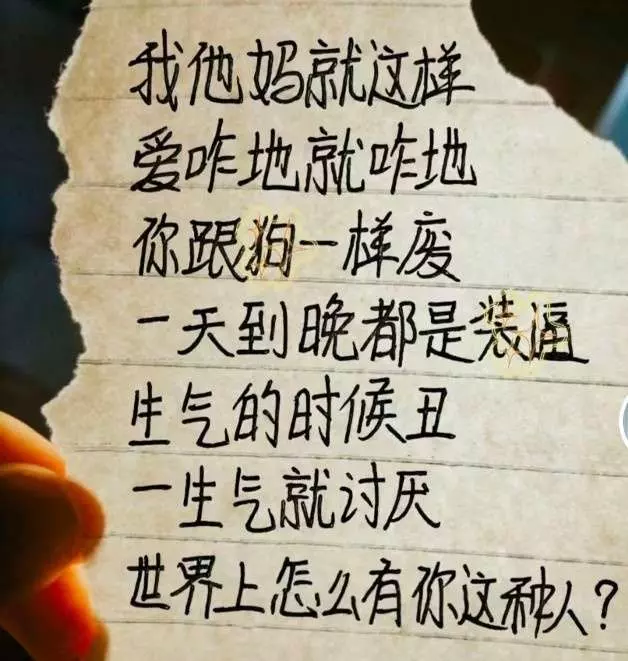 我他妈就这样
爱咋地就咋地
你跟狗一样废
一天到晚都是装逼
生气的时候丑
一生气就讨厌
世界上怎么有你这种人?